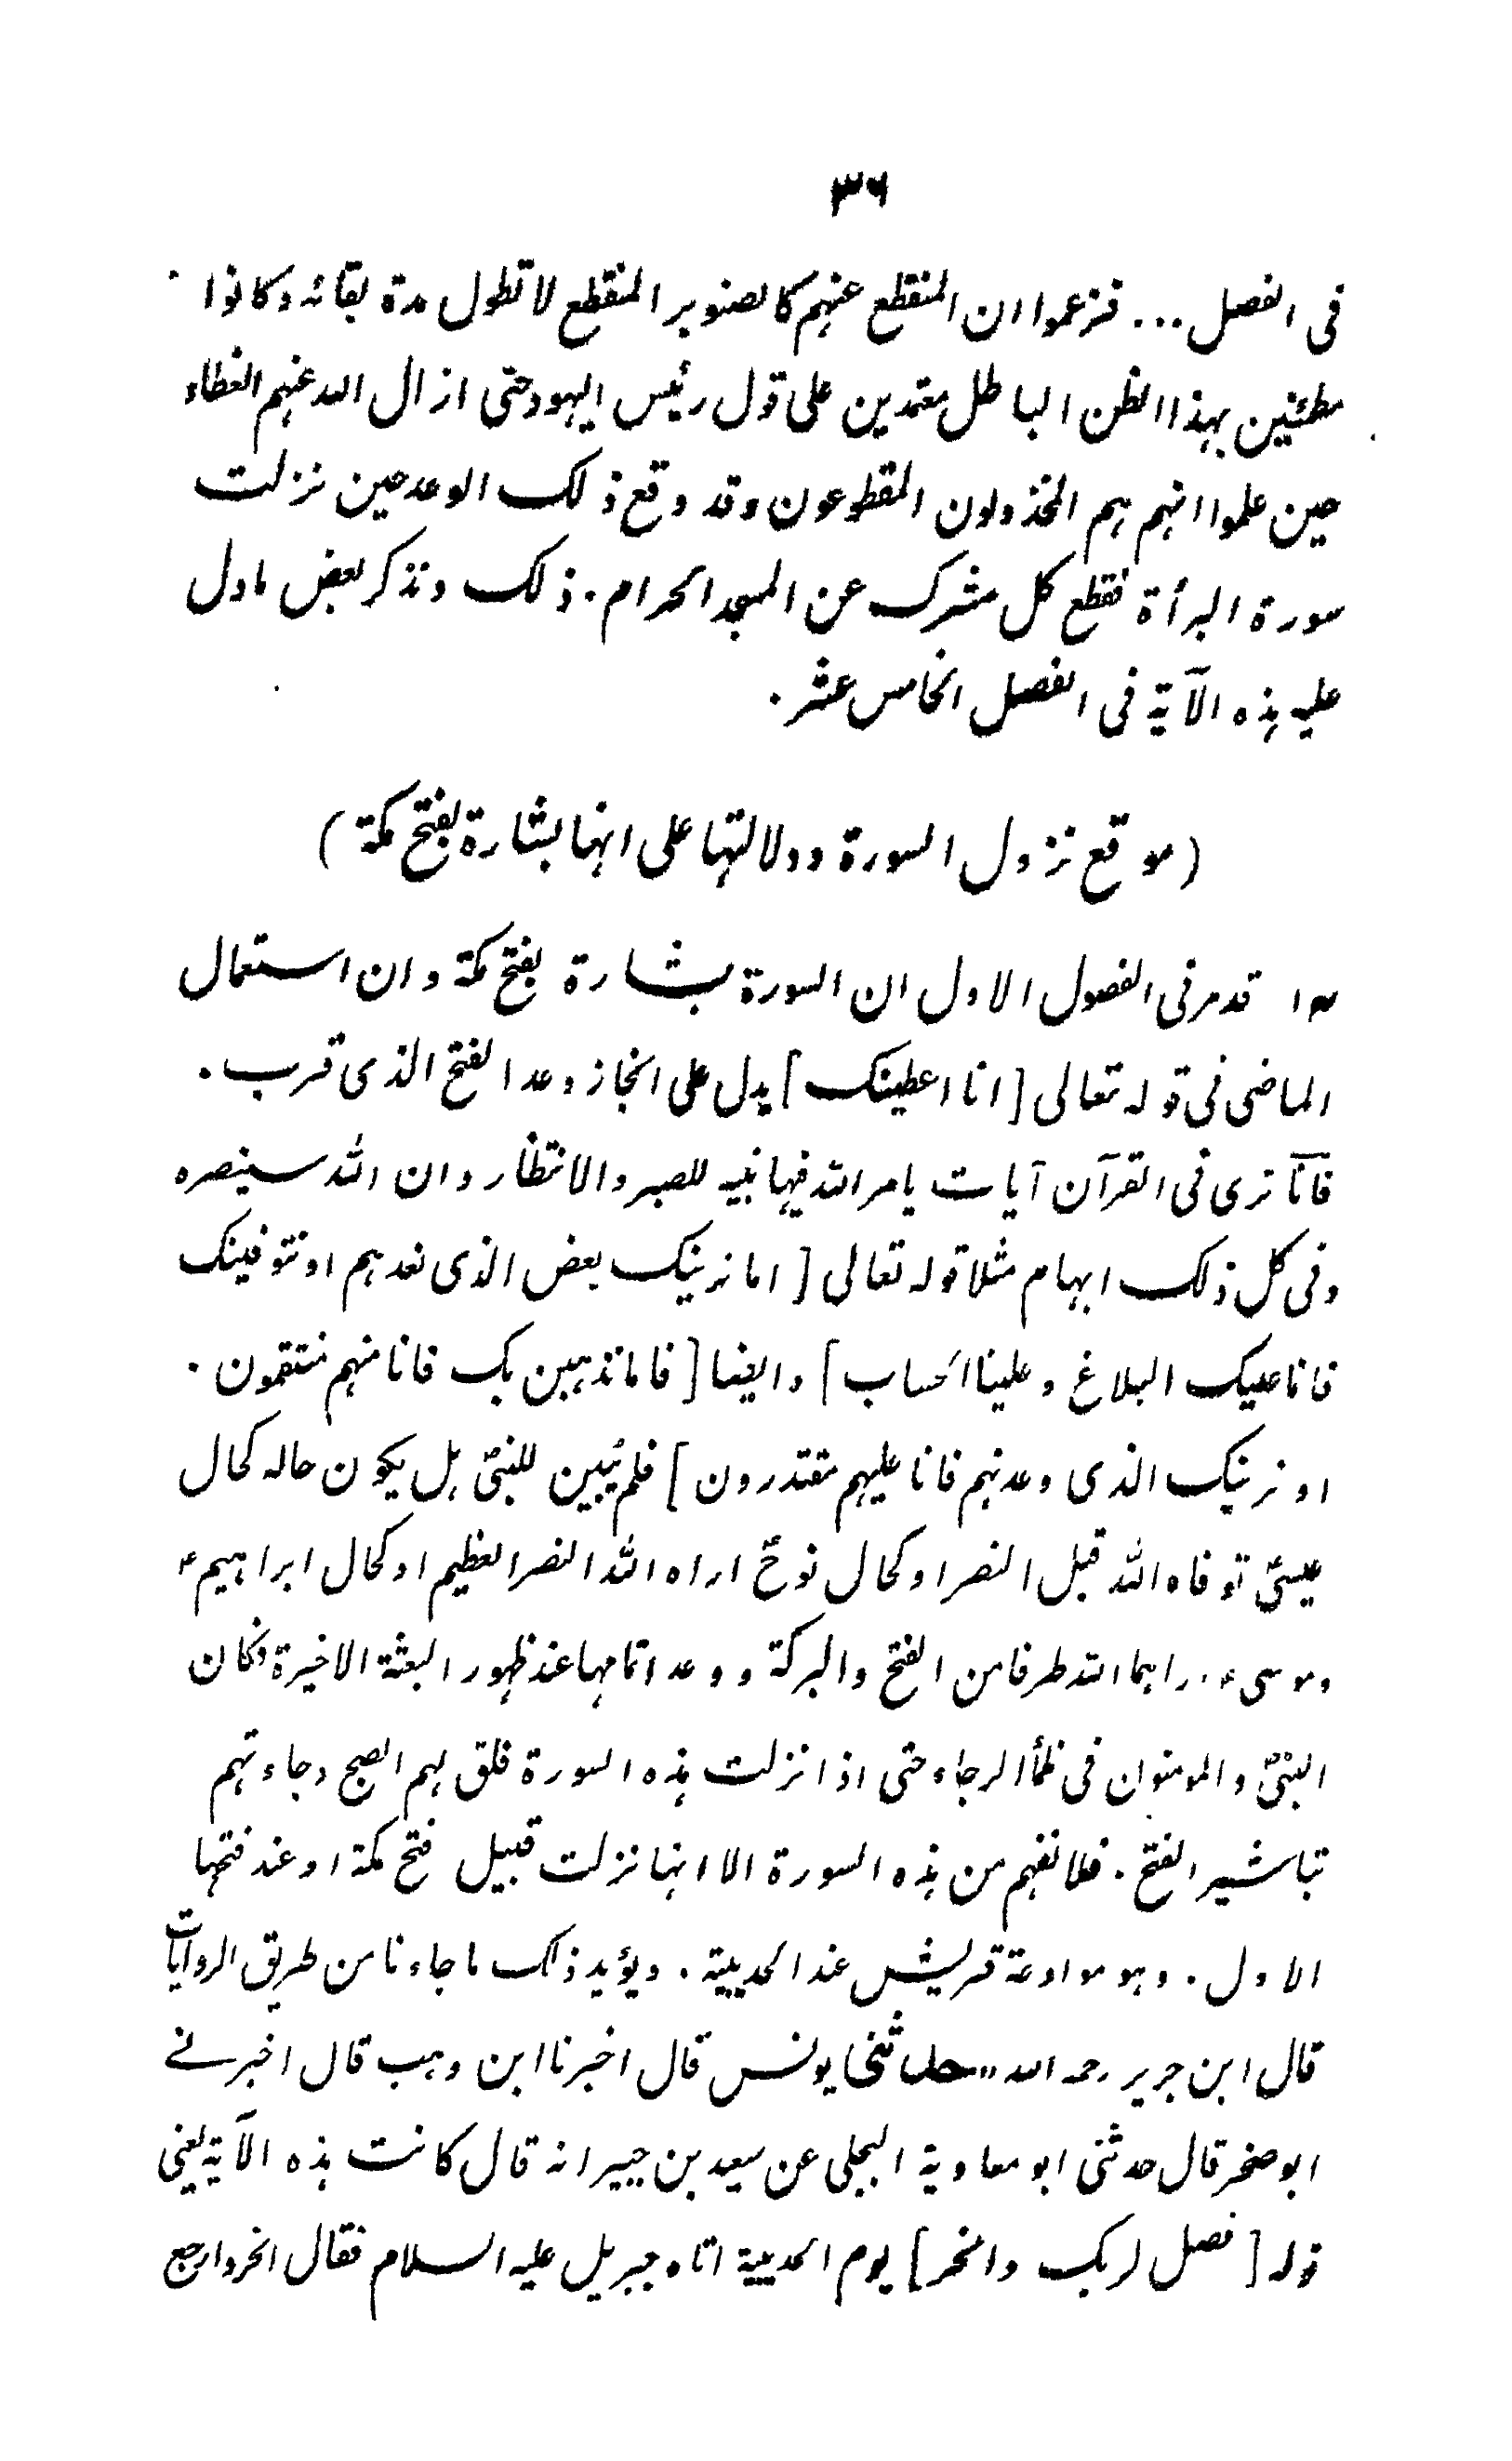 ٣٦
فى الفصل ... فزعموا ان المنقطع عنهم كالصنوبر المنقطع لا تطول مدة بقائه وكانوا
مطمئنين بهذا الظن الباطل معتمدين على قول رئيس اليهود حتى ازال الله عنهم الغطاء
حين علموا انهم هم المخذولون المقطوعون وقد وقع ذلك الوعد حين نزلت
سورة البرأة فقطع كل مشرك عن المسجد الحرام. ذلك ونذكر بعض مادل
عليه هذه الآية فى الفصل الخامس عشر.
(موقع نزول السورة ودلالتها على انها بشارة لفتح مكة)
قد مر فى الفصول الاول ان السورة بشارة بفتح مكة وان استعمال
الماضى فى قوله تعالى [انا اعطينك] يدل على انجاز وعد الفتح الذى قرب.
فانّا نرى فى القرآن آيات يامر الله فيها نبيه للصبر والانتظار وان الله سينصره
وفى كل ذلك ابهام مثلا قوله تعالى [اما نرينك بعض الذى نعدهم او نتوفينك
فانما عليك البلاغ وعلينا الحساب] وايضا [فاما نذهبن بك فانا منهم منتقمون.
او نرينك الذى وعدنهم فانا عليهم مقتدرون] فلم يُبين للنبىؐ هل يكون حاله كحال
عيسىؑ توفاه الله قبل النصر او كحال نوحؑ اراه الله النصر العظيم او كحال ابراهيم ؑ
وموسى ؑ راهما الله طرفا من الفتح والبركة ووعد اتمامها عند ظهور البعثة الاخيرة فكان
النبىؐ والمومنون فى ظمأ الرجاء حتى اذا نزلت هذه السورة فلق لهم الصبح وجاءتهم
تباشير الفتح. فلا نفهم من هذه السورة الا انها نزلت قبيل فتح مكة او عند فتحها
الاول. وهو موادعة قريش عند الحديبية. ويؤيد ذلك ما جاءنا من طريق الروايات
قال ابن جرير رحمه الله "حدثنى يونس قال اخبرنا ابن وهب قال اخبرنى
ابو صخر قال حدثنى ابو معاوية البجلى عن سعيد بن جبير انه قال كانت هذه الآية يعنى
قوله [فصل لربك وانحر] يوم الحديبية اتاه جبريل عليه السلام فقال انحر وارجع